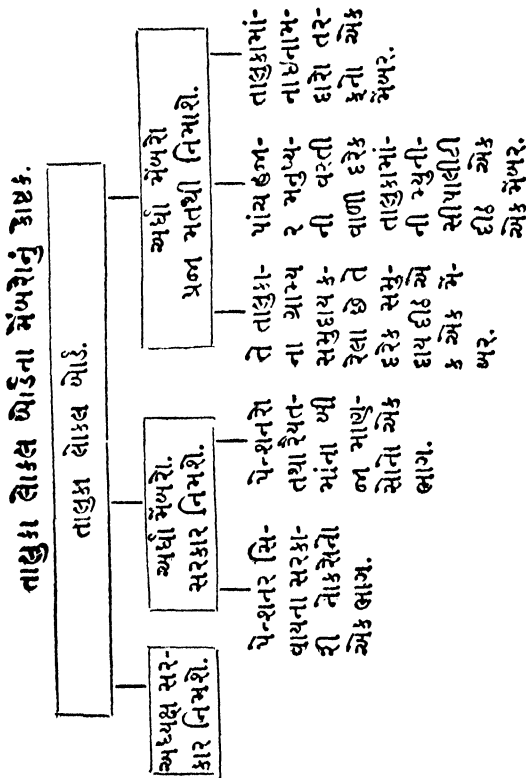 તાલુકા લોકલ બોર્ડના મેંબરોનું કોષ્ટક.
તાલુકા લોકલ બોર્ડ.
અધ્યક્ષ સર-
કાર નિમશે.
અર્ધા મેંબરો.
સરકાર નિમશે.
અર્ધા મેંબરો
પ્રજા મતથી નિમાશે.
પેન્શનર સિ-
વાયના સરકા-
રી નોકરોનો
એક ભાગ.
પેન્શનરો
તથા રૈયત-
માંના બી
જા માણુ-
સોનો એક
ભાગ.
તે તાલુકા-
ના ગ્રામ્ય
સમુદાય ક-
રેલા છે તે
દરેક સમુ-
દાય દીઠ એ
ક એક મેં-
બર.
પાંચ હજા-
ર મનુષ્ય-
ની વસ્તી
વાળી દરેક
તાલુકામાં-
ની મ્યુની-
સીપાલીટી
દીઠ એક
એક મેંબર.
તાલુકામાં-
નાઇનામ-
દારો તર-
ફનો એક
મેંબર.